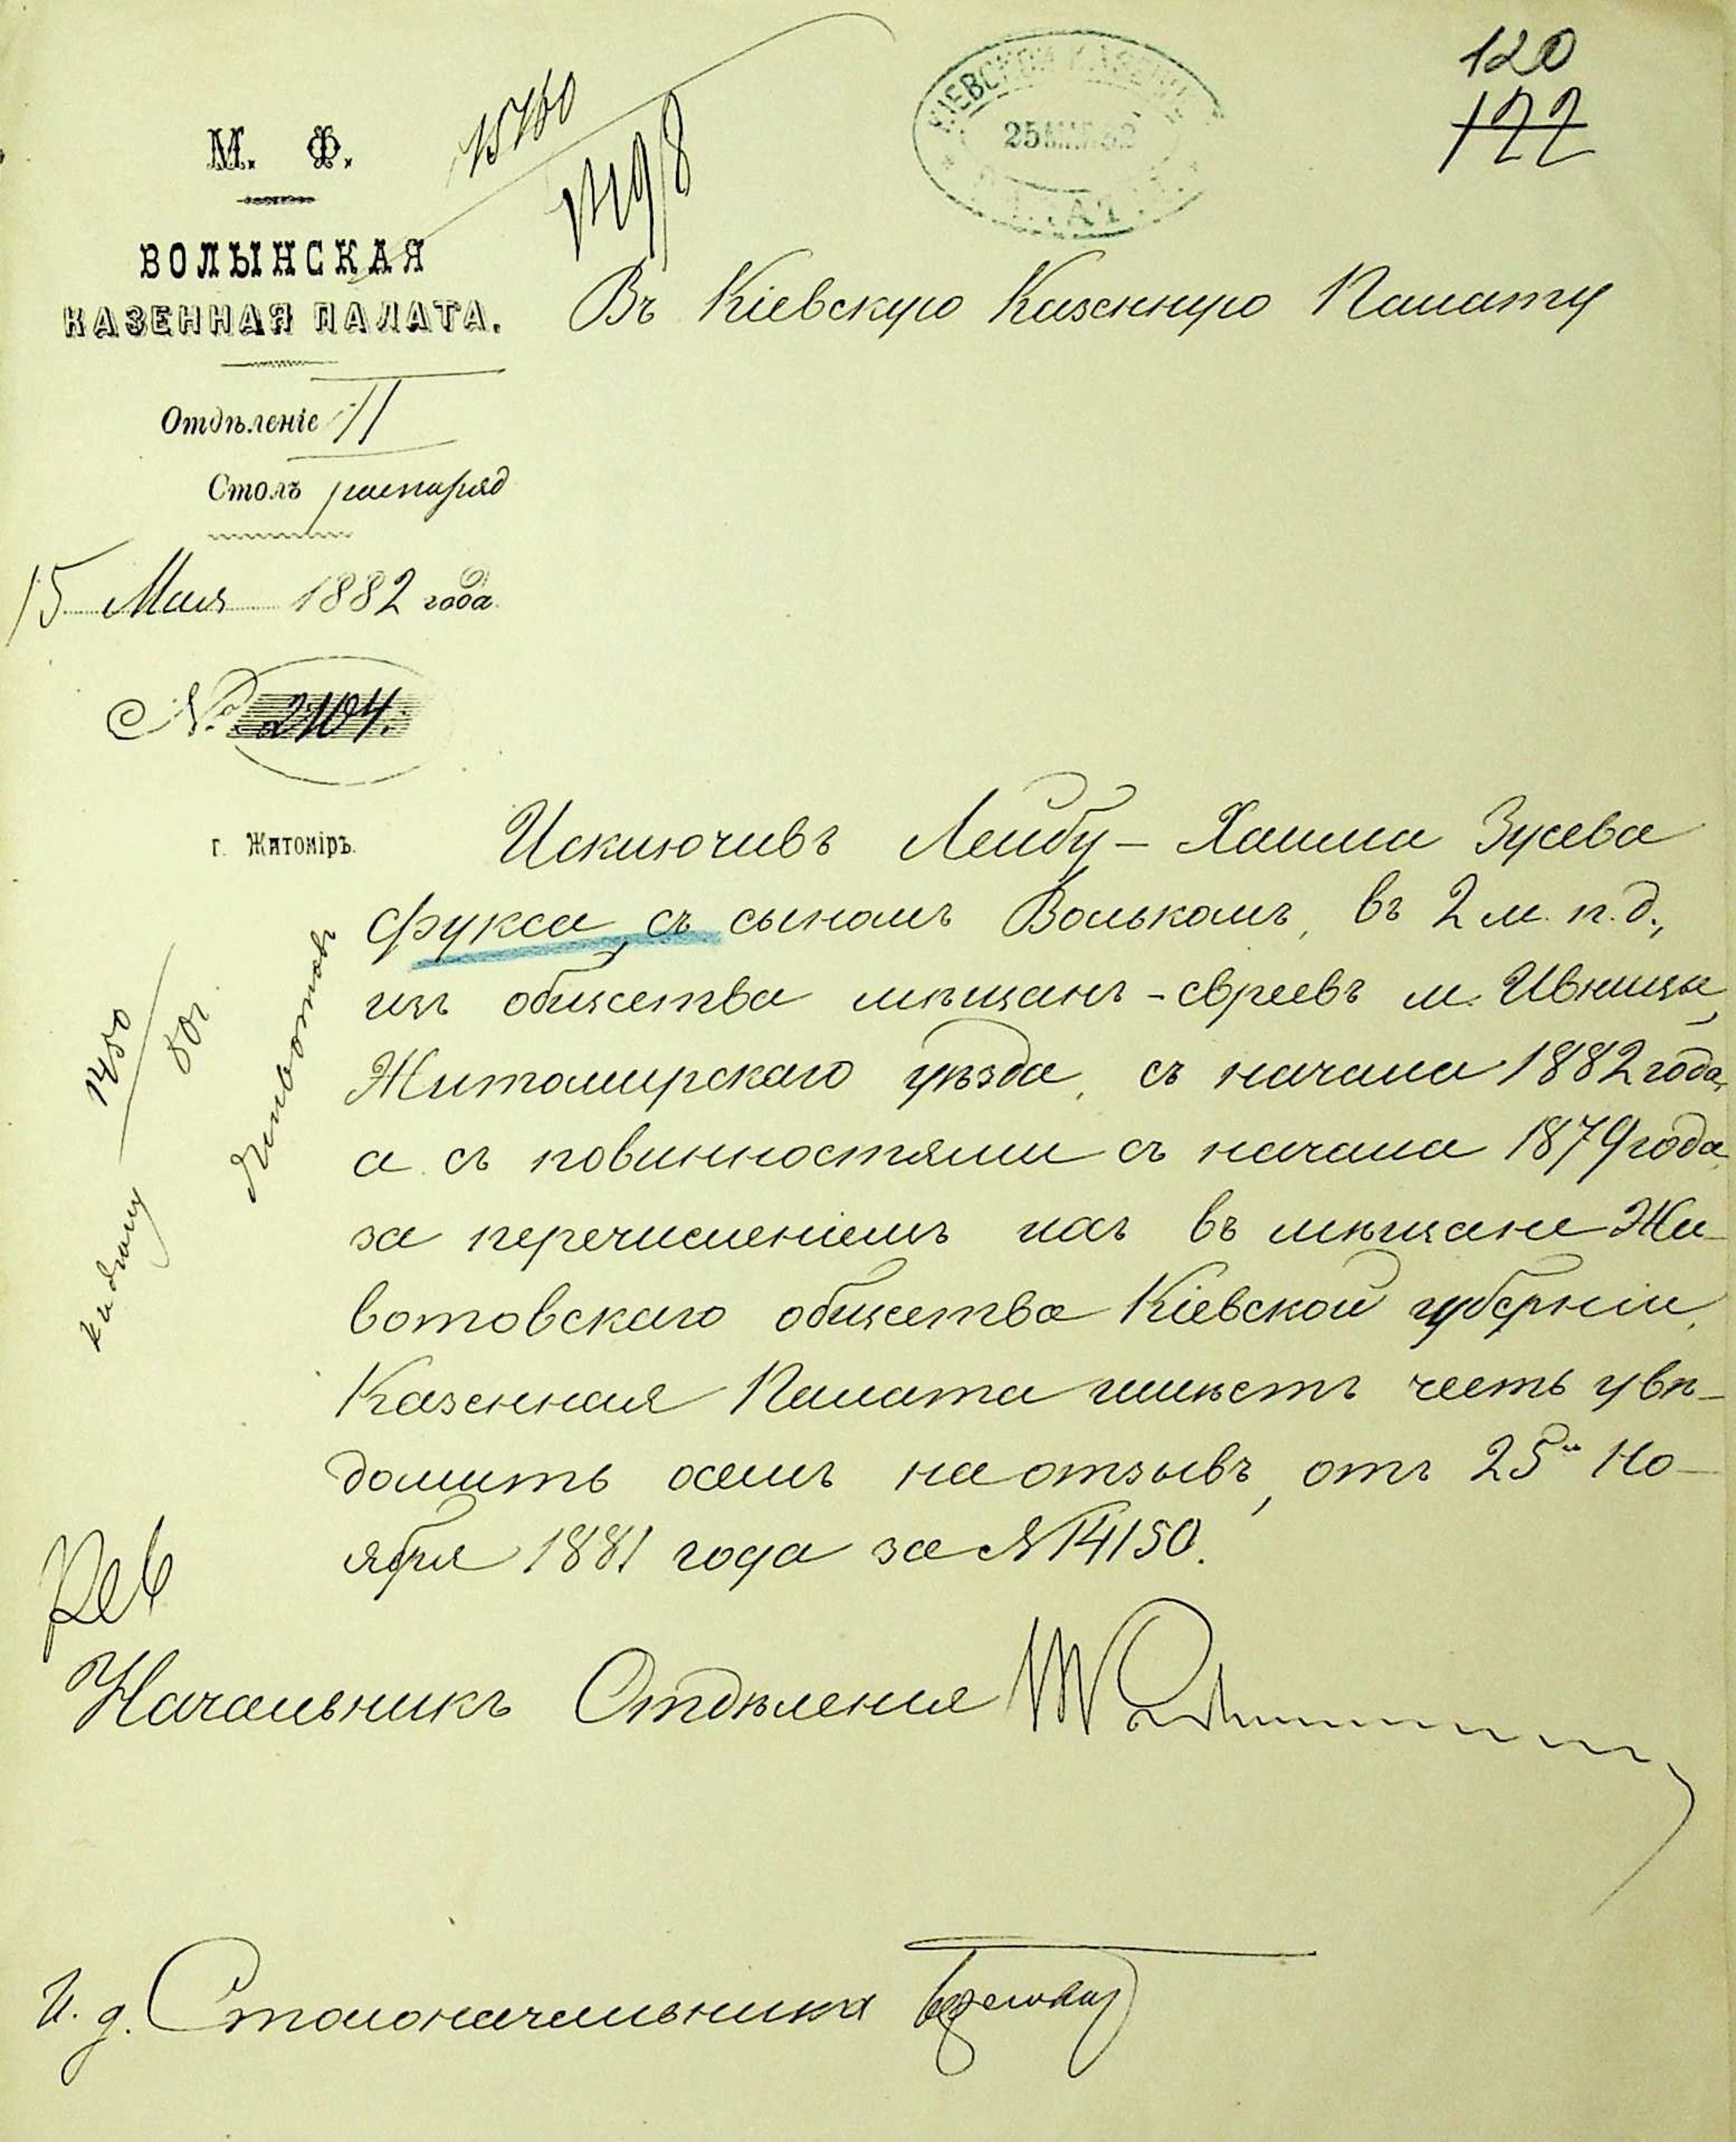 120
122
15760
КІЕВСКОЙ КАЗЕН
25 МАЯ 82
М. Ф.
ВОЛЫНСКАЯ
КАЗЕННАЯ ПАЛАТА.
Отдѣленіе II
Столъ распоряд
15 Мая 1882 года
№ 2104.
г. Житоміръ.
Въ Кіевскую Казенную Палату
Исключивъ Лейбу-Хаима Зусева
Фукса, съ сыномъ Волькомъ, въ 2 м. п. д.,
изъ общества мѣщанъ-евреевъ м. Ивницы,
Житомирскаго уѣзда, съ начала 1882 года,
а съ повинностями съ начала 1879 года
за перечисленіемъ ихъ въ мѣщане Жи-
вотовскаго общества Кіевской губерніи,
Казенная Палата имѣетъ честь увѣ-
домить о семъ на отзывъ, отъ 25 Но-
ября 1881 года за № 14150.
Животовъ
1450
80 г.
Рев
Начальникъ Отдѣленія
И. д. Столоначальника